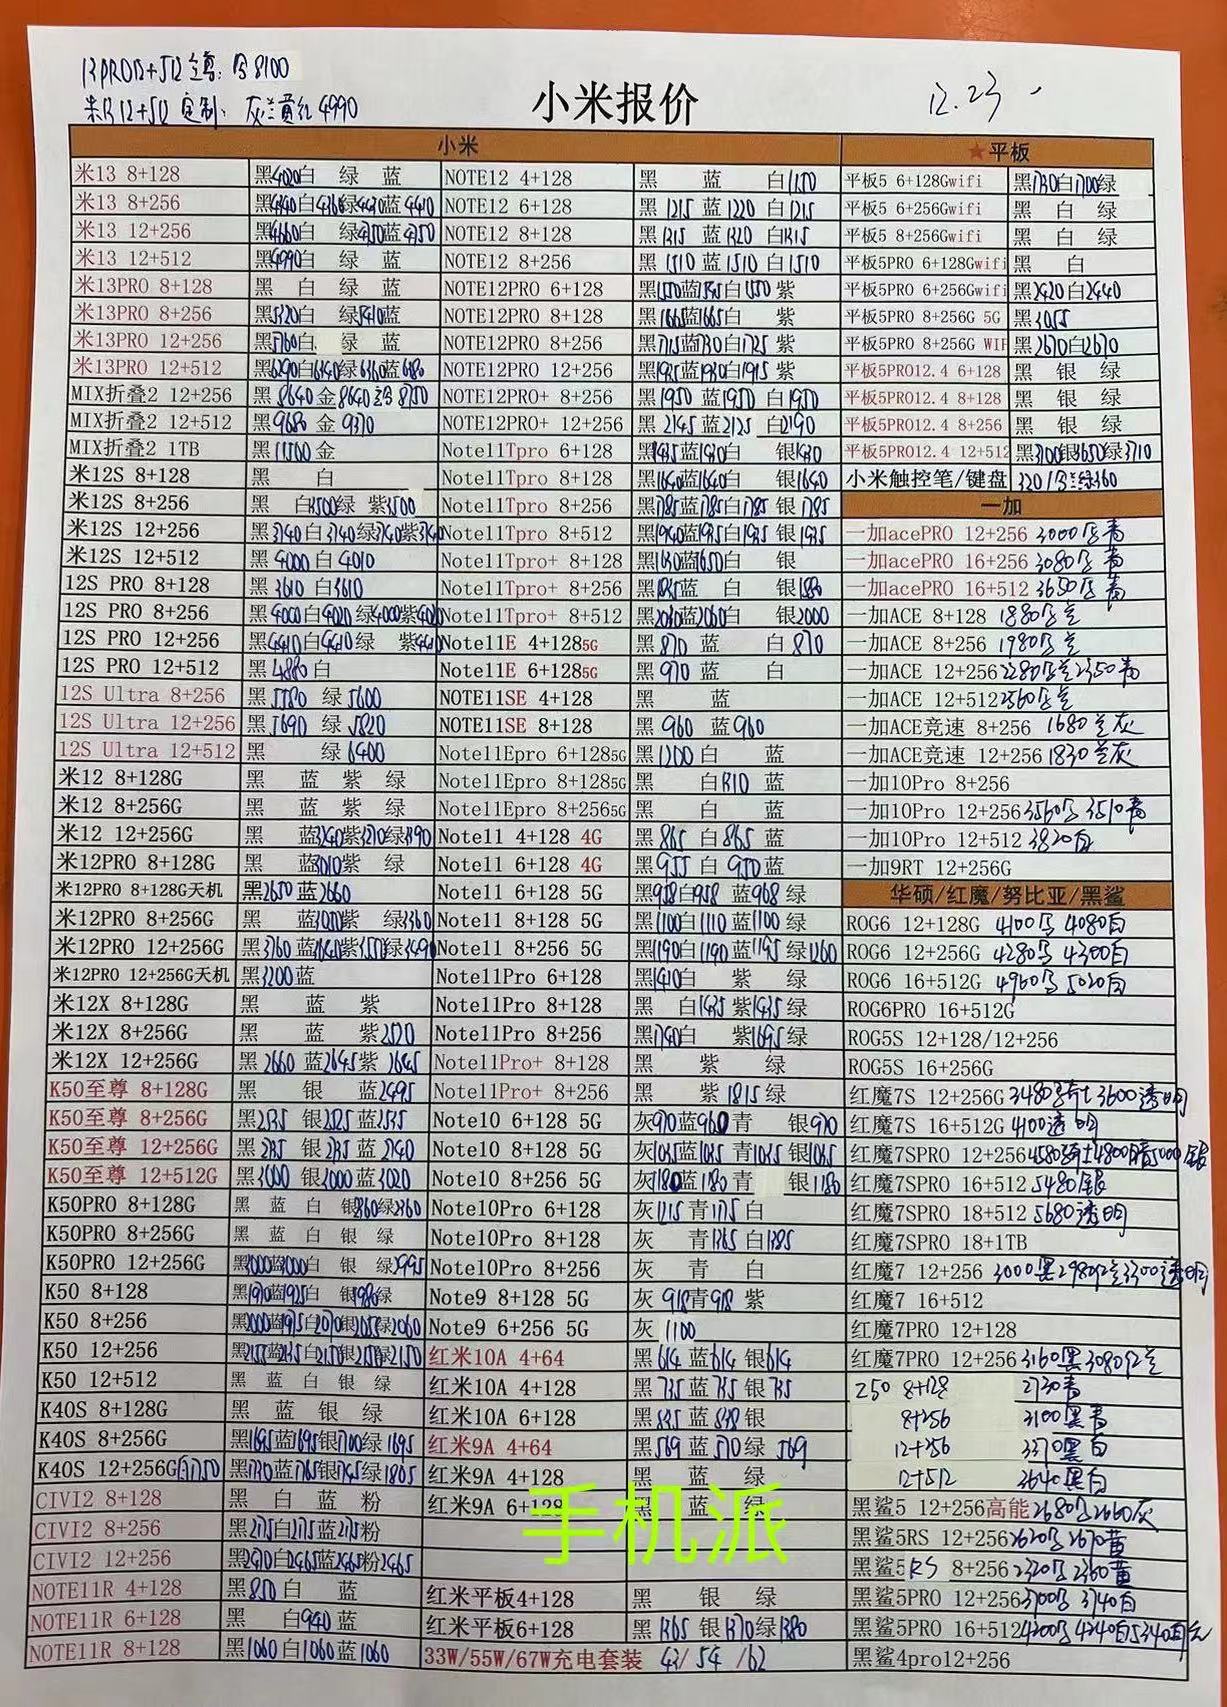 13PRO12+512 : 8100
米13 12+512 定制: 灰兰黄红 4990
小米报价
12.23
小米
米13 8+128 黑4020白 绿 蓝
米13 8+256 黑 白 绿 蓝4410
米13 12+256 黑4660白 绿 蓝
米13 12+512 黑4990白 绿 蓝
米13PRO 8+128 黑 白 绿 蓝
米13PRO 8+256 黑5320白 绿5410蓝
米13PRO 12+256 黑5760白 绿 蓝
米13PRO 12+512 黑6290白6340绿6360蓝
MIX折叠2 12+256 黑 8640 金 8640 8750
MIX折叠2 12+512 黑 9680 金 9370
MIX折叠2 1TB 黑11500金
米12S 8+128 黑 白
米12S 8+256 黑 白3500绿 紫3500
米12S 12+256 黑3740白3740绿3740紫
米12S 12+512 黑 4000 白 4010
12S PRO 8+128 黑 3610 白3610
12S PRO 8+256 黑4000白4020绿4000紫
12S PRO 12+256 黑4410白4410绿 紫
12S PRO 12+512 黑 4880 白
12S Ultra 8+256 黑 5580 绿 5600
12S Ultra 12+256 黑 5690 绿 5820
12S Ultra 12+512 黑 绿 6400
米12 8+128G 黑 蓝 紫 绿
米12 8+256G 黑 蓝 紫 绿
米12 12+256G 黑 蓝3240紫3270绿
米12PRO 8+128G 黑 蓝3010紫 绿
米12PRO 8+128G天机 黑2650蓝2660
米12PRO 8+256G 黑 蓝 紫 绿3360
米12PRO 12+256G 黑3760蓝 紫 绿3490
米12PRO 12+256G天机 黑3200蓝
米12X 8+128G 黑 蓝 紫
米12X 8+256G 黑 蓝 紫2520
米12X 12+256G 黑 2660 蓝2645紫 2645
K50至尊 8+128G 黑 银 蓝2495
K50至尊 8+256G 黑2535 银2525 蓝2535
K50至尊 12+256G 黑 银 蓝 2740
K50至尊 12+512G 黑3000 银3000 蓝3020
K50PRO 8+128G 黑 蓝 白 银 绿2360
K50PRO 8+256G 黑 蓝 白 银 绿
K50PRO 12+256G 黑3000蓝3000白 银 绿2995
K50 8+128 黑1970蓝1925白 银1980绿
K50 8+256 黑2000蓝1975白2070银2055绿2060
K50 12+256 黑2155蓝2135白2150银2150绿2150
K50 12+512 黑 蓝 白 银 绿
K40S 8+128G 黑 蓝 银 绿
K40S 8+256G 黑1695蓝1695银1700绿 1695
K40S 12+256G白1750 黑1730蓝1765银1745绿1805
CIVI2 8+128 黑 白 蓝 粉
CIVI2 8+256 黑2175白2175蓝2175粉
CIVI2 12+256 黑2470白2465蓝2465粉2465
NOTE11R 4+128 黑 850 白 蓝
NOTE11R 6+128 黑 白940 蓝
NOTE11R 8+128 黑1060白1060蓝1060
NOTE12 4+128 黑 蓝 白1150
NOTE12 6+128 黑 1215 蓝1220 白1215
NOTE12 8+128 黑1315 蓝1320 白1315
NOTE12 8+256 黑 1510 蓝1510 白1510
NOTE12PRO 6+128 黑1550蓝1545白1550 紫
NOTE12PRO 8+128 黑1665蓝1665白 紫
NOTE12PRO 8+256 黑1715蓝1730白1725 紫
NOTE12PRO 12+256 黑1935蓝1930白1915 紫
NOTE12PRO+ 8+256 黑1950 蓝1950 白1950
NOTE12PRO+ 12+256 黑 2145 蓝2125 白2190
Note11Tpro 6+128 黑1435蓝1430白 银1430
Note11Tpro 8+128 黑1640蓝1640白 银1640
Note11Tpro 8+256 黑1785蓝1785白1785 银1785
Note11Tpro 8+512 黑1940蓝1935白1935 银1935
Note11Tpro+ 8+128 黑 蓝1650白 银
Note11Tpro+ 8+256 黑1835蓝 白 银
Note11Tpro+ 8+512 黑 蓝2060白 银2000
Note11E 4+1285G 黑 870 蓝 白 870
Note11E 6+1285G 黑 970 蓝 白
NOTE11SE 4+128 黑 蓝
NOTE11SE 8+128 黑 960 蓝960
Note11Epro 6+1285G 黑1200白 蓝
Note11Epro 8+1285G 黑 白1310 蓝
Note11Epro 8+2565G 黑 白 蓝
Note11 4+128 4G 黑 865 白 865 蓝
Note11 6+128 4G 黑 955 白 950蓝
Note11 6+128 5G 黑958白958 蓝968 绿
Note11 8+128 5G 黑1100白1110蓝1100绿
Note11 8+256 5G 黑1190白1190蓝1195 绿1200
Note11Pro 6+128 黑1410白 紫 绿
Note11Pro 8+128 黑 白1435 紫1435绿
Note11Pro 8+256 黑1740白 紫1695绿
Note11Pro+ 8+128 黑 紫 绿
Note11Pro+ 8+256 黑 紫 1815绿
Note10 6+128 5G 灰970蓝960青 银970
Note10 8+128 5G 灰1035蓝1035 青1035 银1035
Note10 8+256 5G 灰1180蓝1180 青 银1180
Note10Pro 6+128 灰1215 青1175 白
Note10Pro 8+128 灰 青1365 白1385
Note10Pro 8+256 灰 青 白
Note9 8+128 5G 灰 918青918 紫
Note9 6+256 5G 灰 1100
红米10A 4+64 黑614 蓝614 银614
红米10A 4+128 黑 735 蓝 735 银735
红米10A 6+128 黑 835 蓝 838 银
红米9A 4+64 黑569 蓝 570 绿 569
红米9A 4+128 黑 蓝 绿
红米9A 6+128 黑 蓝 绿
红米平板4+128 黑 银 绿
红米平板6+128 黑 1365 银 1370绿1380
33W/55W/67W充电套装 43/ 54 /62
★平板
平板5 6+128Gwifi 黑1730白1700绿
平板5 6+256Gwifi 黑 白 绿
平板5 8+256Gwifi 黑 白 绿
平板5PRO 6+128Gwifi 黑 白
平板5PRO 6+256Gwifi 黑2420白2440
平板5PRO 8+256G 5G 黑3055
平板5PRO 8+256G WIF 黑2670白2670
平板5PRO12.4 6+128 黑 银 绿
平板5PRO12.4 8+128 黑 银 绿
平板5PRO12.4 8+256 黑 银 绿
平板5PRO12.4 12+512 黑3700银3650绿3710
小米触控笔/键盘 320 360
一加
一加acePRO 12+256 3000 青
一加acePRO 16+256 3080 青
一加acePRO 16+512 3650 青
一加ACE 8+128 1880 兰
一加ACE 8+256 1980 兰
一加ACE 12+256 2280 兰2350青
一加ACE 12+512 2560 兰
一加ACE竞速 8+256 1680 兰灰
一加ACE竞速 12+256 1830 兰灰
一加10Pro 8+256
一加10Pro 12+256 3560 3510青
一加10Pro 12+512 3820白
一加9RT 12+256G
华硕/红魔/努比亚/黑鲨
ROG6 12+128G 4100 4080白
ROG6 12+256G 4280 4300白
ROG6 16+512G 4960 5020白
ROG6PRO 16+512G
ROG5S 12+128/12+256
ROG5S 16+256G
红魔7S 12+256G 3480骑士3600透明
红魔7S 16+512G 4100透明
红魔7SPRO 12+256 4580骑士4800 5000银
红魔7SPRO 16+512 5480银
红魔7SPRO 18+512 5680透明
红魔7SPRO 18+1TB
红魔7 12+256 3000黑2980红兰3300透明
红魔7 16+512
红魔7PRO 12+128
红魔7PRO 12+256 3160黑 3080红兰
Z50 8+128 2730青
8+256 3100黑青
12+256 3370黑白
12+512 3640黑白
黑鲨5 12+256高能 2680 2660灰
黑鲨5RS 12+256 2620 2670黄
黑鲨5RS 8+256 2320 2360黄
黑鲨5PRO 12+256 3700 3740白
黑鲨5PRO 16+512 4200 4240白5340
黑鲨4pro12+256
手机派